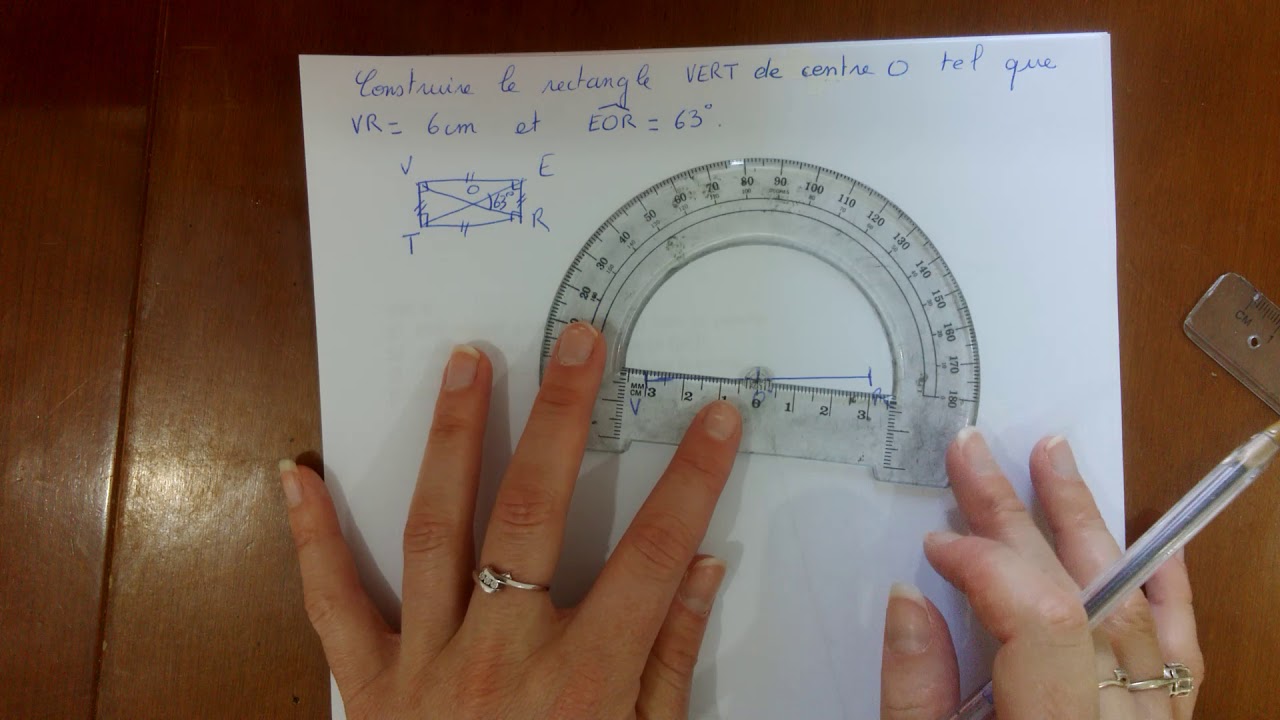 Construire le rectangle VERT de centre O tel que
VR = 6cm et EOR = 63°.
V E
O 63°
T R
80 90 100
70 110
60 120
50 130
40 140
30 150
20 160
170
180
MM
CM 3 2 1 0 1 2 3
V O R
CM